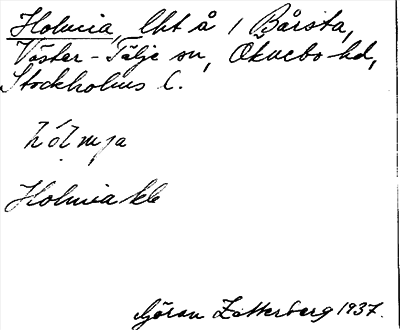 Holmia, lht å 1 Bårsta,
Väster-Tälje sn, Öknebo hd,
Stockholms l.
hólmja
Holmia kle
Göran Zetterberg 1937.